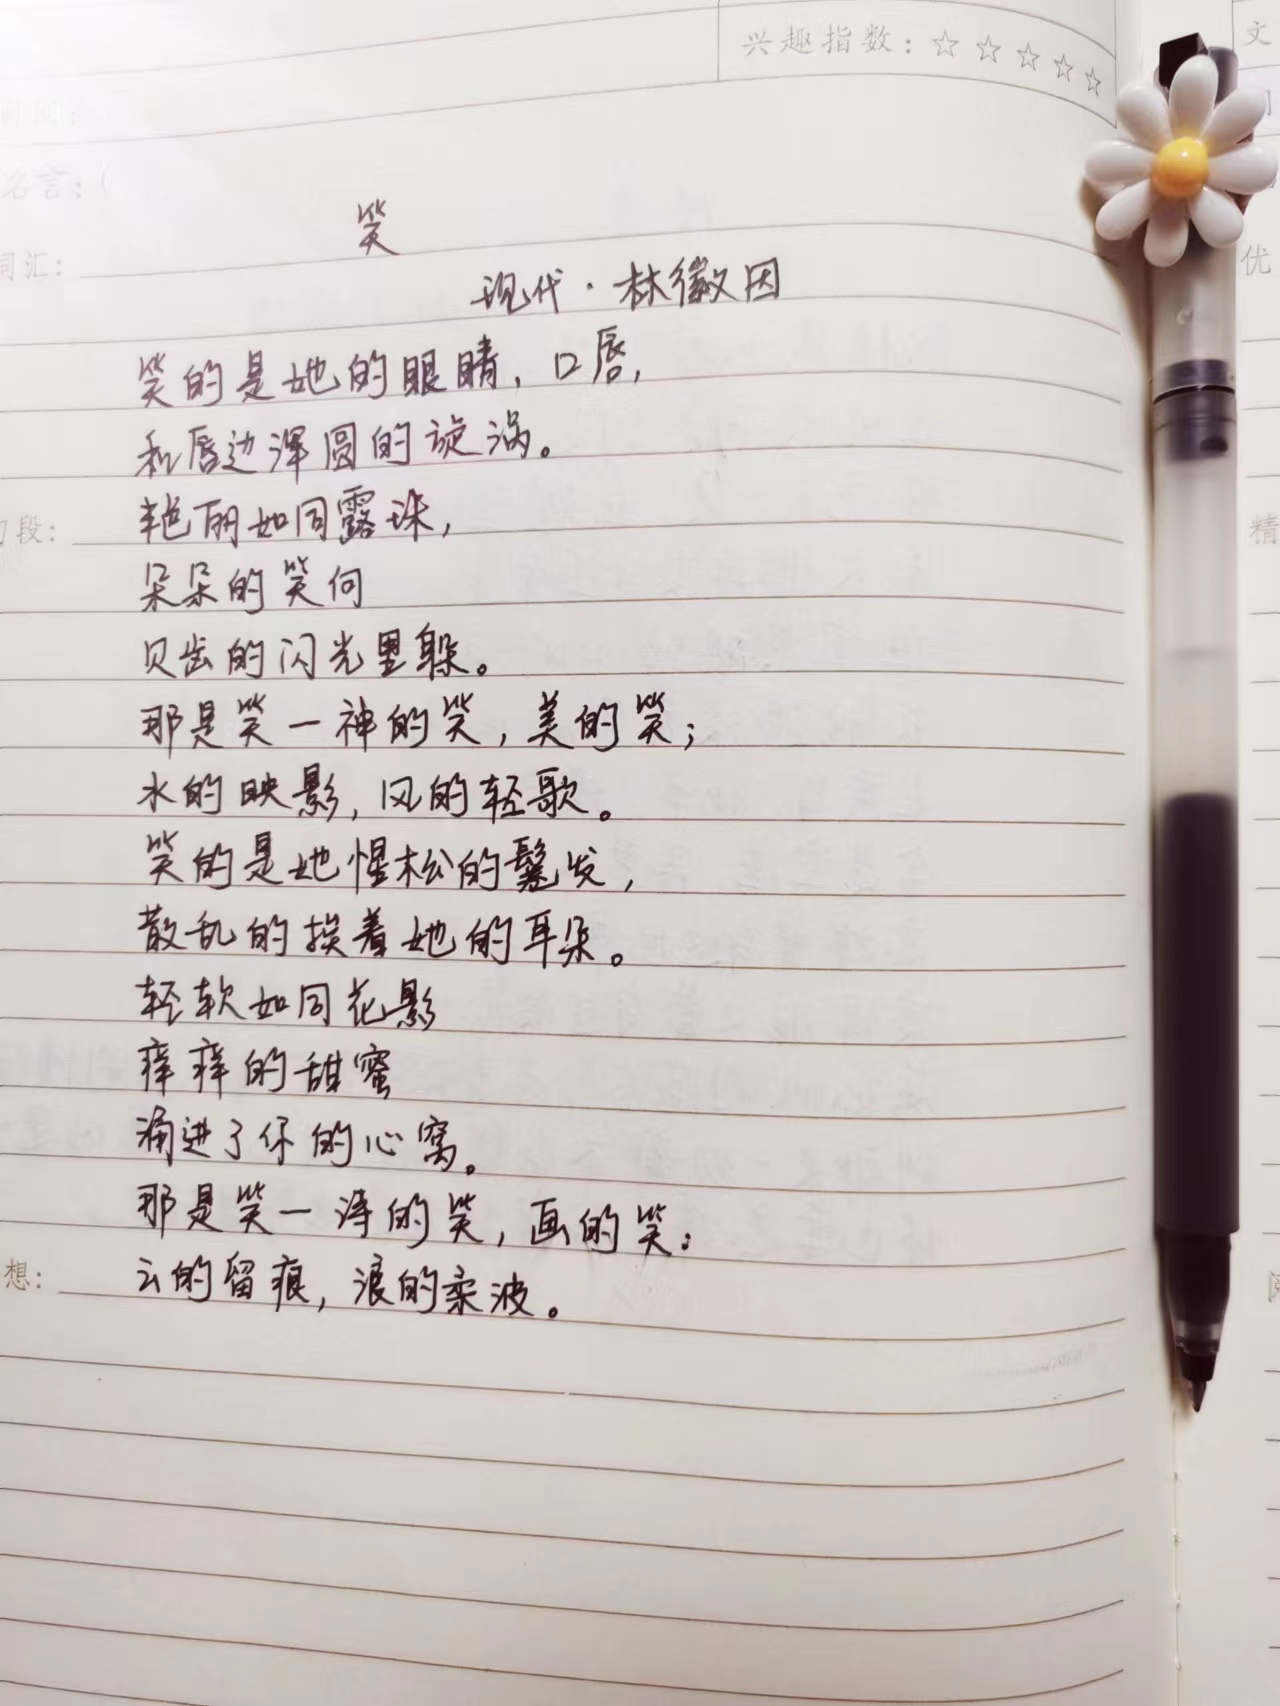 兴趣指数：☆ ☆ ☆ ☆ ☆
名言：（
词汇：
段：
想：
笑
现代·林徽因
笑的是她的眼睛，口唇，
和唇边浑圆的旋涡。
艳丽如同露珠，
朵朵的笑向
贝齿的闪光里躲。
那是笑一神的笑，美的笑；
水的映影，风的轻歌。
笑的是她惺松的鬈发，
散乱的挨着她的耳朵。
轻软如同花影
痒痒的甜蜜
涌进了你的心窝。
那是笑一诗的笑，画的笑：
云的留痕，浪的柔波。
文
优
精